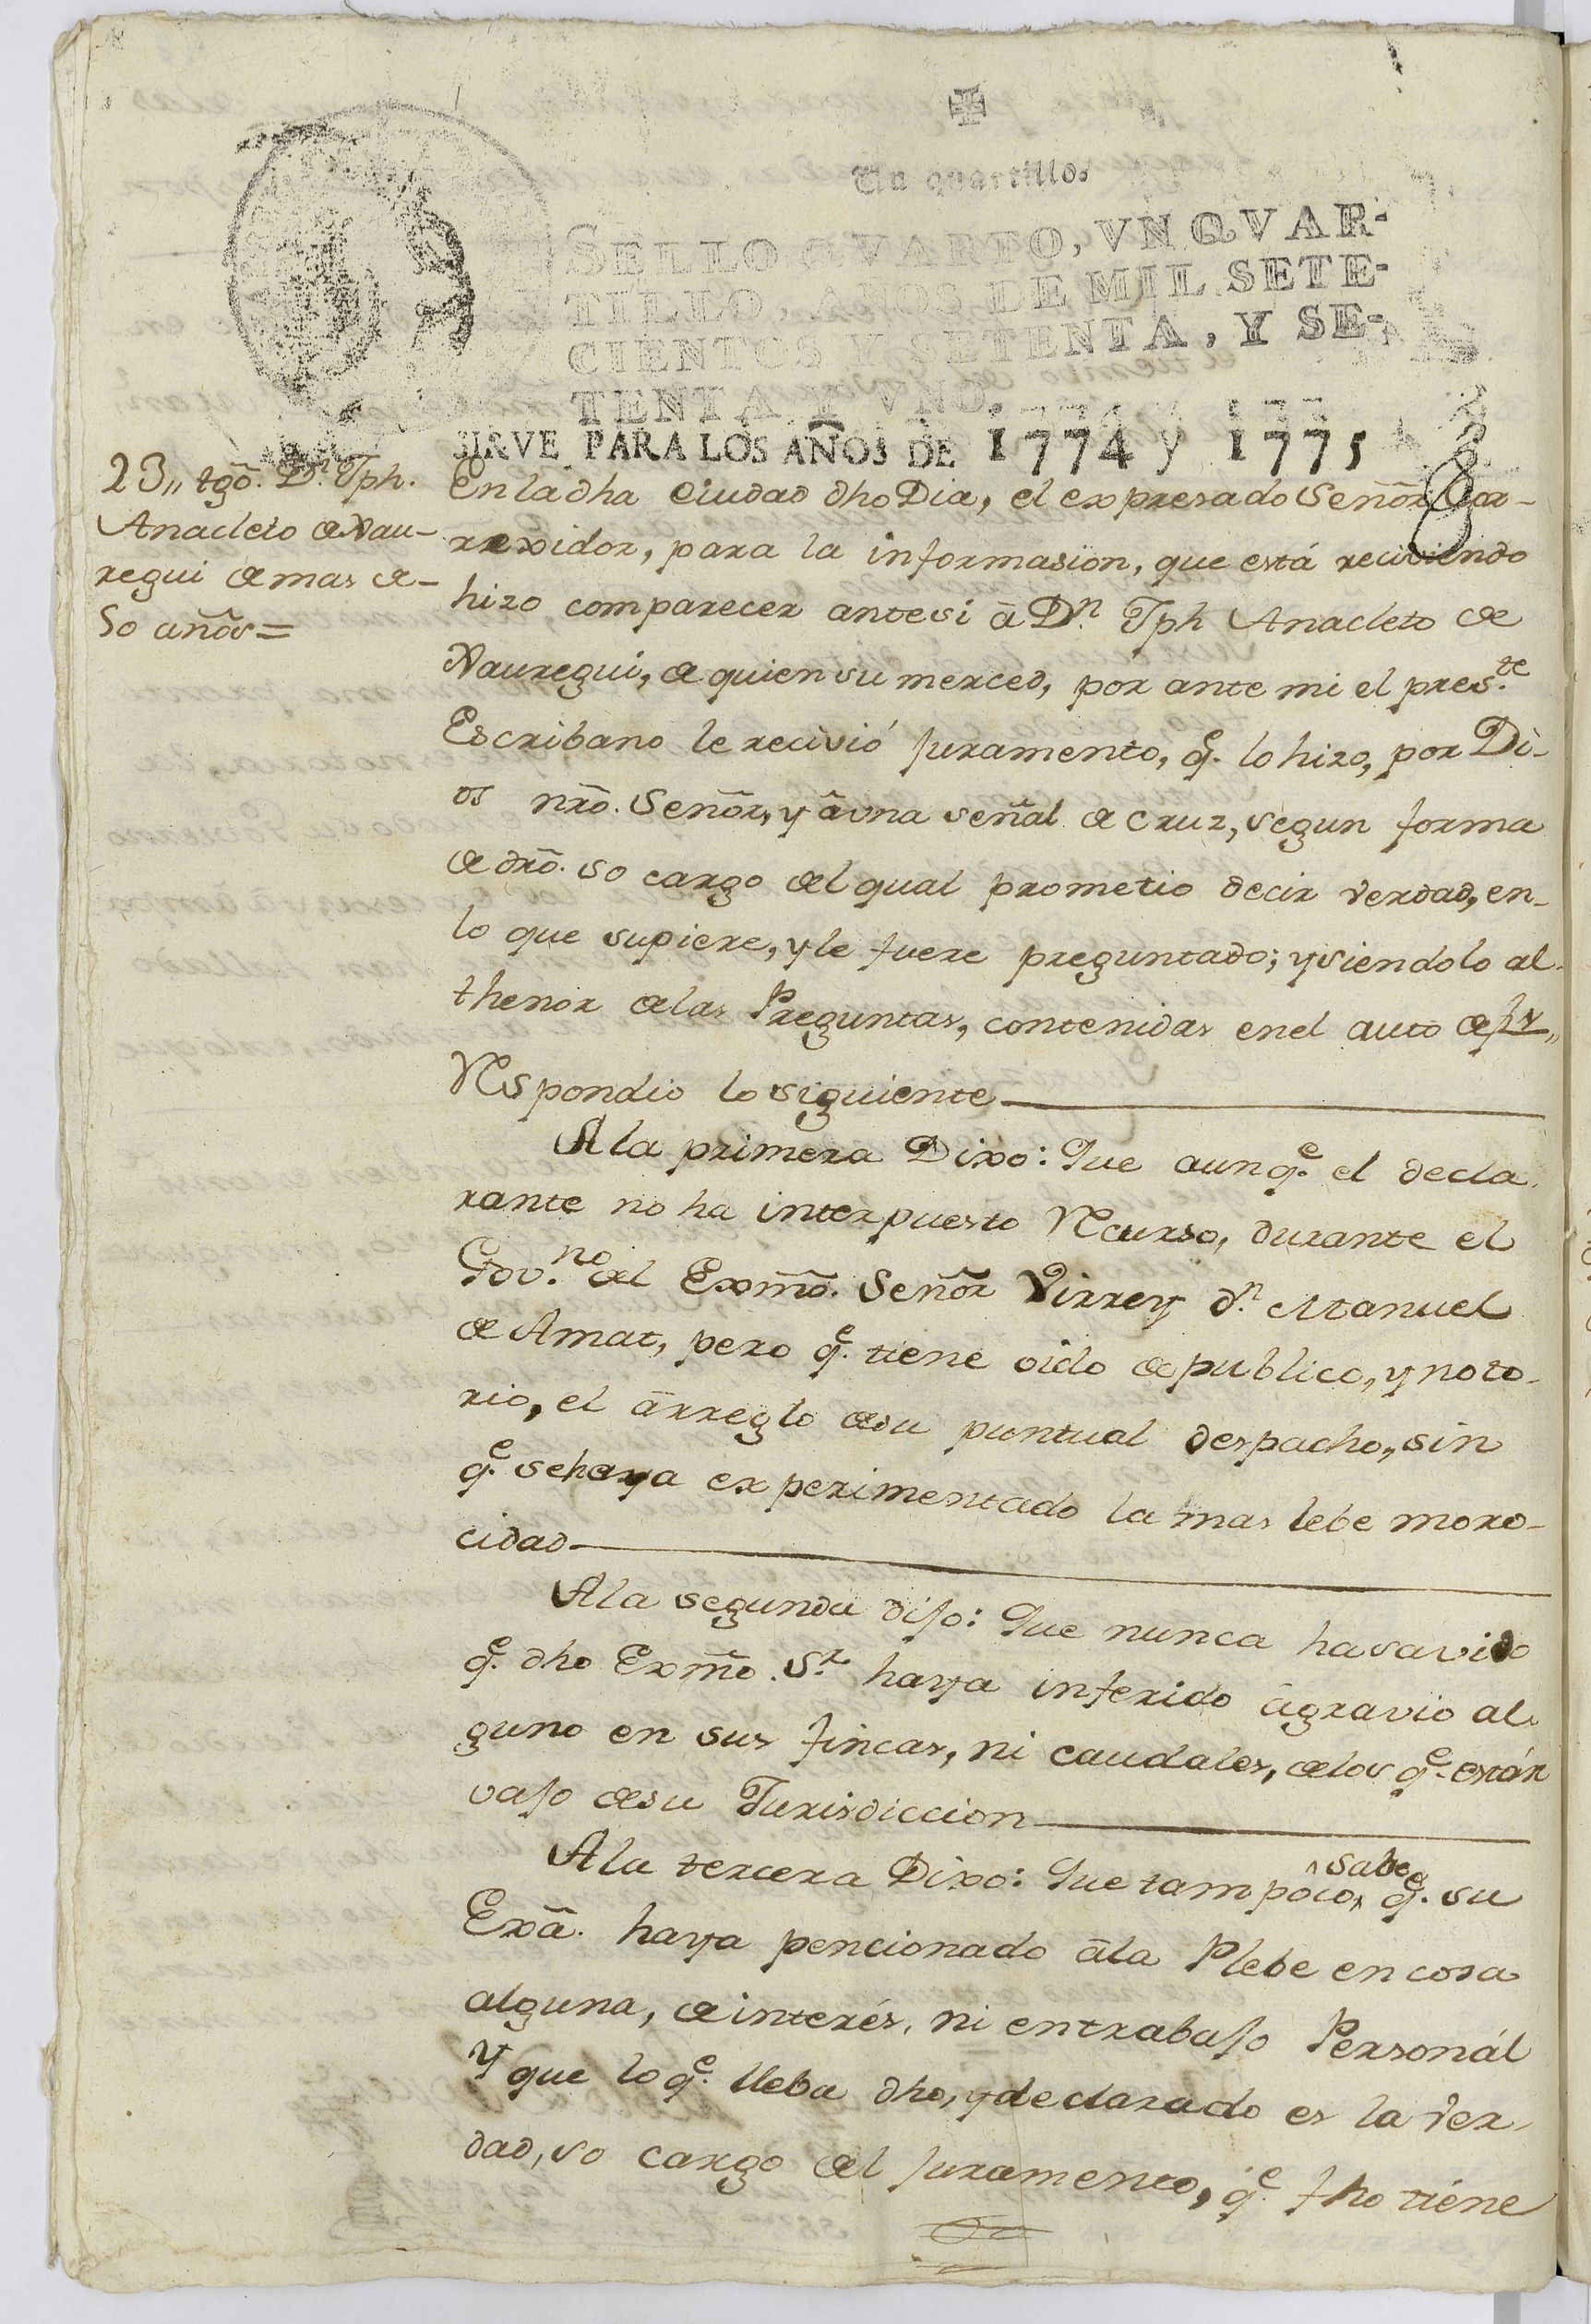 Un quartillo.
SELLO QVARTO, VN QVAR-
TILLO, AÑOS DE MIL SETE-
CIENTOS Y SETENTA, Y SE-
TENTA Y VNO.
SIRVE PARA LOS AÑOS DE 1774 y 1775
23,, tgō. Dn. Jph.
Anacleto de Nau-
regui de mas de
50 años=
En la dha Ciudad dho Dia, el expresado Señor Cor-
rexidor, para la informasion, que está reciviendo
hizo comparecer antesi â Dn. Jph Anacleto de
Nauregui, de quien su merced, por ante mi el preste.
Escribano le recivió juramento, qe. lo hizo, por Di-
os nrō. Señor, y âvna señal de Cruz, segun forma
de drō. so cargo del qual prometio decir verdad, en-
lo que supiere, y le fuere preguntado; y siendolo al-
thenor delas Preguntas, contenidas enel auto de
Respondio lo siguiente
A la primera Dixo: Que aunqe. el decla-
rante no ha interpuesto Recurso, durante el
Govno. del Exmō. Señor Virrey dn. Manuel
de Amat, pero qe. tiene oido de publico, y noto-
rio, el ârreglo desu puntual despacho, sin
qe. sehaya experimentado la mas lebe moro-
cidad
A la segunda dijo: Que nunca hasavido
qe. dho Exmō. Sr. haya inferido âgravio al-
guno en sus fincas, ni caudales, delos qe. están
vajo desu Jurisdiccion
A la tercera Dixo: Que tampoco, sabe qe. su
Exâ. haya pencionado âla Plebe en cosa
alguna, de interés, ni entrabajo Personál
Y que lo qe. lleba dho, y declarado es la ver-
dad, so cargo del juramento, qe. fho tiene